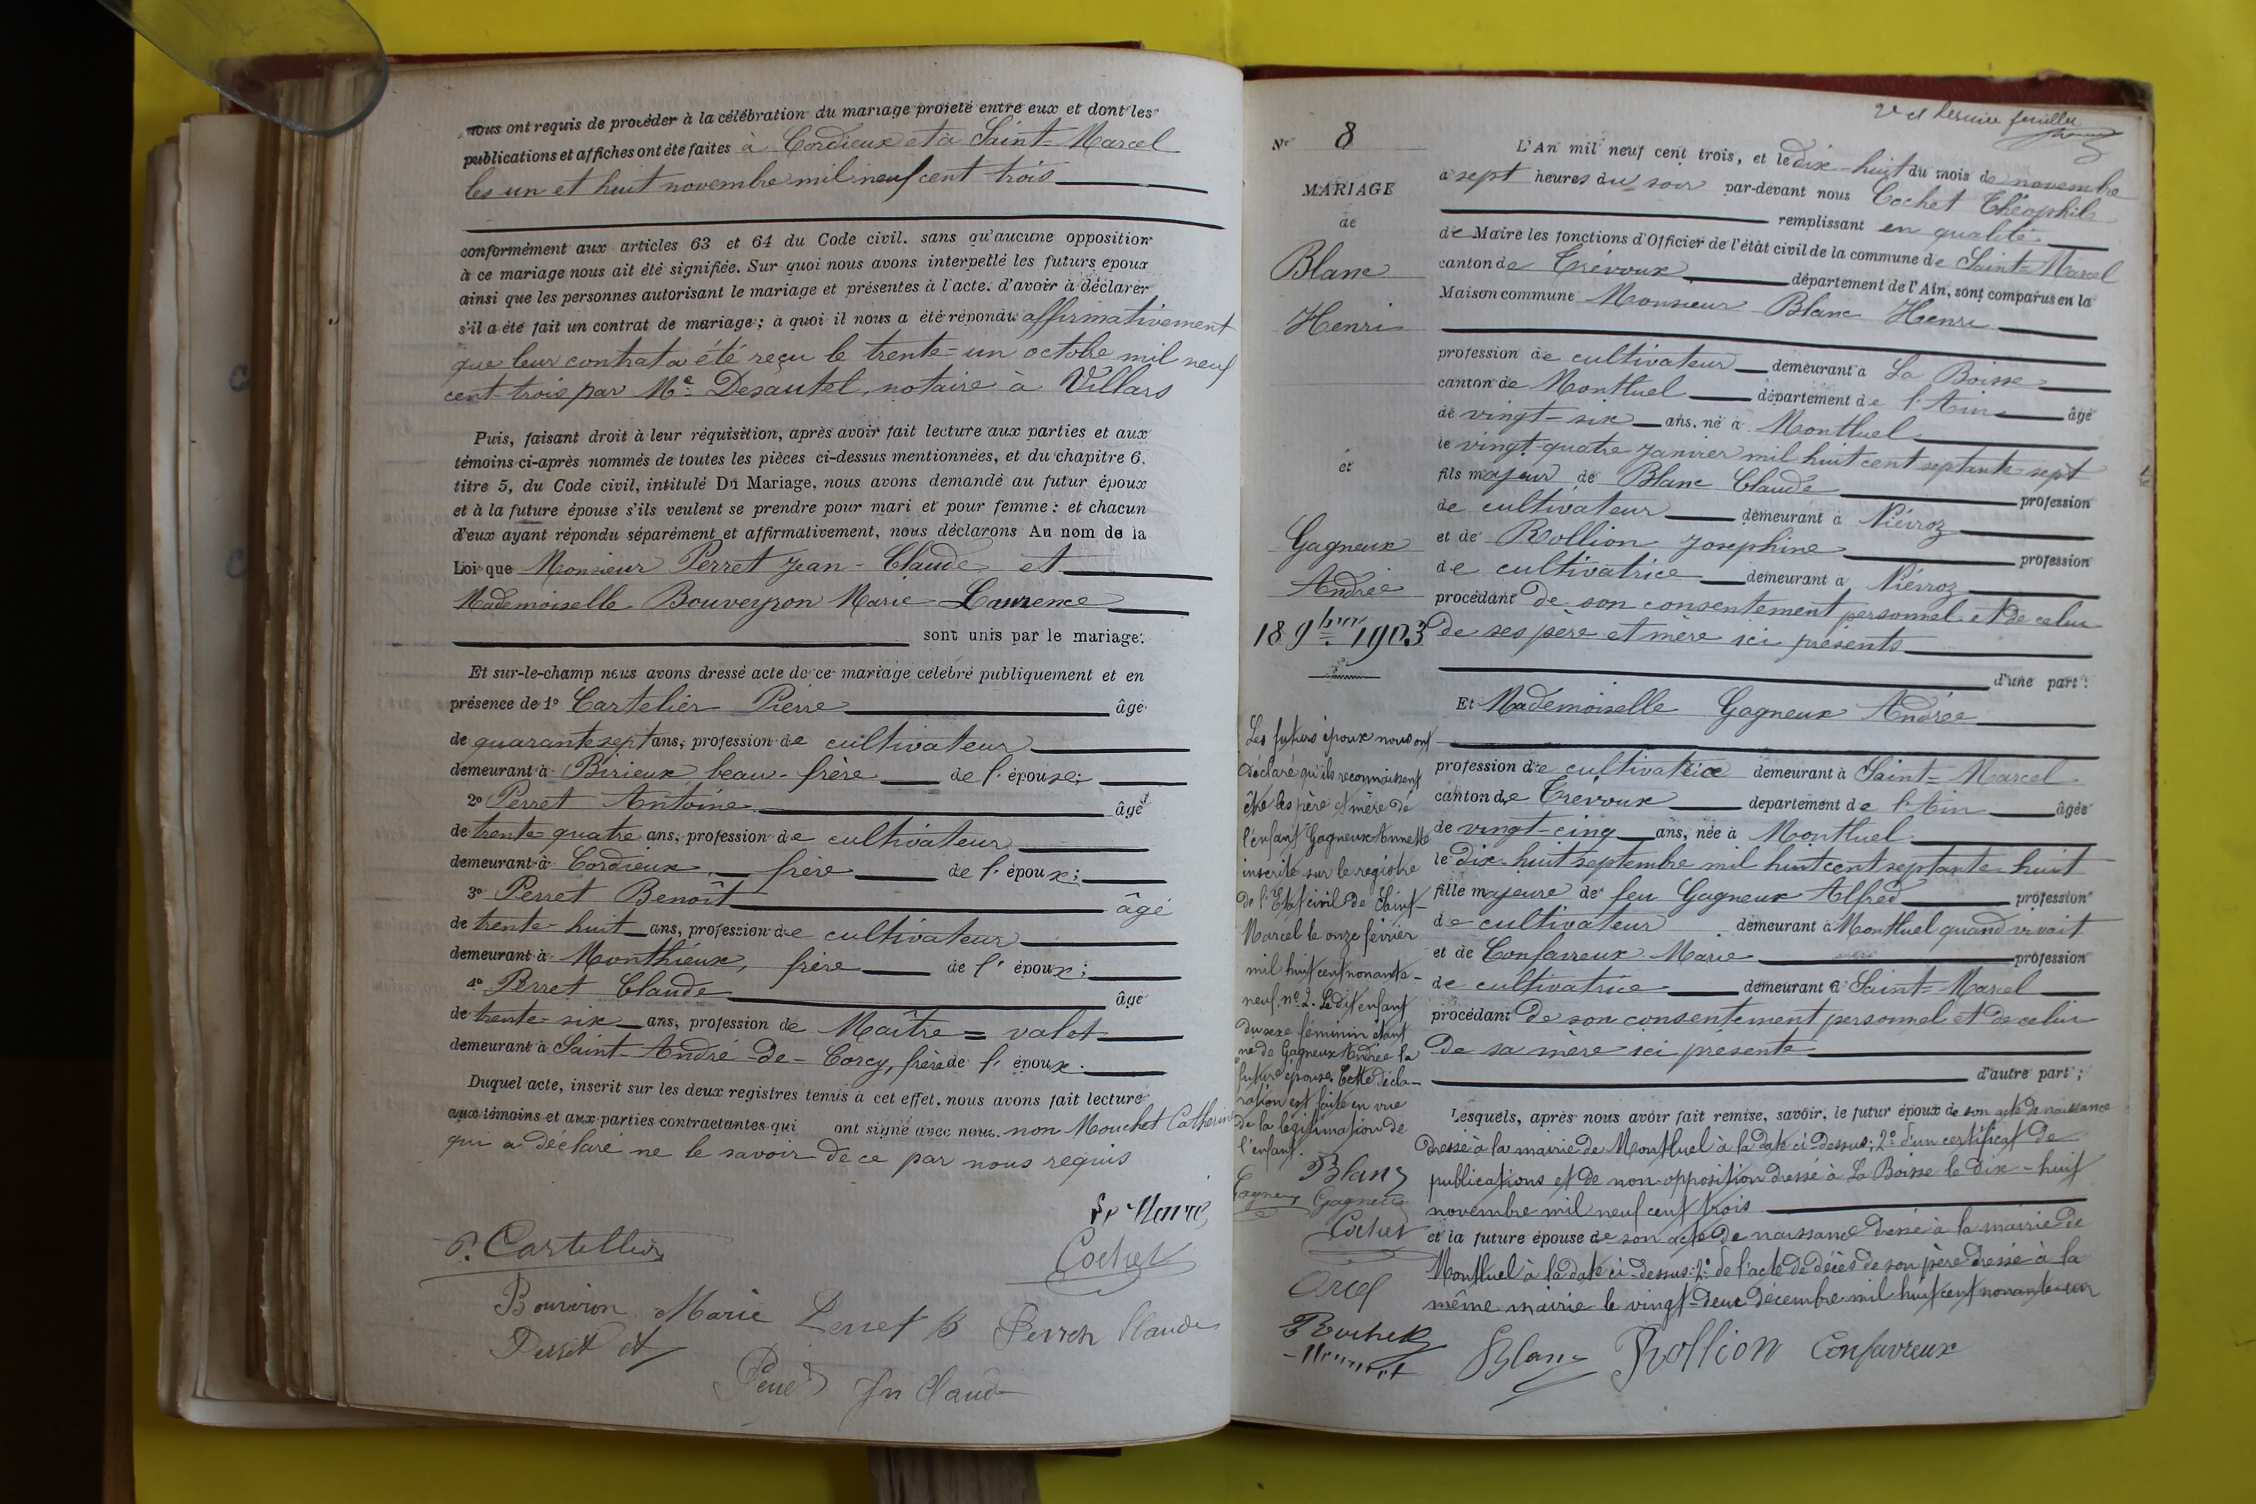 nous ont requis de procéder à la célébration du mariage projeté entre eux et dont les
publications et affiches ont été faites à Cordieux et à Saint-Marcel
les un et huit novembre mil neuf cent trois
conformément aux articles 63 et 64 du Code civil. sans qu'aucune opposition
à ce mariage nous ait été signifiée. Sur quoi nous avons interpellé les futurs époux
ainsi que les personnes autorisant le mariage et présentes à l'acte. d'avoir à déclarer
s'il a été fait un contrat de mariage; à quoi il nous a été répondu affirmativement
que leur contrat a été reçu le trente-un octobre mil neuf
cent trois par Me Desautel, notaire à Villars
Puis, faisant droit à leur réquisition, après avoir fait lecture aux parties et aux
témoins ci-après nommés de toutes les pièces ci-dessus mentionnées, et du chapitre 6.
titre 5, du Code civil, intitulé Du Mariage, nous avons demandé au futur époux
et à la future épouse s'ils veulent se prendre pour mari et pour femme: et chacun
d'eux ayant répondu séparément et affirmativement, nous déclarons Au nom de la
Loi que Monsieur Perret Jean-Claude et
Mademoiselle Bouveyron Marie-Laurence
sont unis par le mariage.
Et sur-le-champ nous avons dressé acte de ce mariage célébré publiquement et en
présence de 1º Cartelier Pierre âgé
de quarante sept ans, profession de cultivateur
demeurant à Birieux beau-frère de l'épouse;
2º Perret Antoine âgé
de trente quatre ans, profession de cultivateur
demeurant à Cordieux, frère de l'époux;
3º Perret Benoît âgé
de trente-huit ans, profession de cultivateur
demeurant à Monthieux, frère de l'époux;
4º Perret Claude âgé
de trente-six ans, profession de Maître=valet
demeurant à Saint-André-de-Corcy, frère de l'époux.
Duquel acte, inscrit sur les deux registres tenus à cet effet. nous avons fait lecture
aux témoins et aux parties contractantes qui ont signé avec nous. non Mouchet Catherine
qui a déclaré ne le savoir de ce par nous requis
Le Maire,
P. Cartellier
Cochet
Marie Perret B Perret Claude
Perret At
Jn Claude
2e et dernier feuillet
Nº 8
MARIAGE
de
Blanc
Henri
et
Gagneux
Andrée
18 9bre 1903
Les futurs époux nous ont
déclaré qu'ils reconnaissent
être les père et mère de
l'enfant Gagneux Annette
inscrite sur le registre
de l'Etat civil de Saint-
Marcel le onze février
mil huit cent nonante-
neuf, nº 2. Le dit enfant
du sexe féminin étant
né de Gagneux Andrée la
future épouse. Cette décla-
ration est faite en vue
de la légitimation de
l'enfant.
Blanc
Gagneux Gagneux
Cochet
Orcel
L'An mil neuf cent trois, et le dix-huit du mois de novembre
à sept heures du soir par-devant nous Cochet Théophile
remplissant en qualité
de Maire les fonctions d'Officier de l'état civil de la commune de Saint-Marcel
canton de Trévoux département de l'Ain, sont comparus en la
Maison commune Monsieur Blanc Henri
profession de cultivateur demeurant à La Boisse
canton de Montluel département de l'Ain âgé
de vingt-six ans, né à Montluel
le vingt-quatre janvier mil huit cent septante-sept
fils majeur de Blanc Claude profession
de cultivateur demeurant à Niévroz
et de Rollion Joséphine profession
de cultivatrice demeurant à Niévroz
procédant de son consentement personnel et de celui
de ses père et mère ici présents
d'une part:
Et Mademoiselle Gagneux Andrée
profession de cultivatrice demeurant à Saint-Marcel
canton de Trévoux département de l'Ain âgée
de vingt-cinq ans, née à Montluel
le dix-huit septembre mil huit cent septante-huit
fille majeure de feu Gagneux Alfred profession
de cultivateur demeurant à Montluel quand vivait
et de Confavreux Marie profession
de cultivatrice demeurant à Saint-Marcel
procédant de son consentement personnel et de celui
de sa mère ici présente
d'autre part;
Lesquels, après nous avoir fait remise, savoir, le futur époux de son acte de naissance
dressé à la mairie de Montluel à la date ci-dessus; 2º d'un certificat de
publications et de non-opposition dressé à La Boisse le dix-huit
novembre mil neuf cent trois
et la future épouse de son acte de naissance dressé à la mairie de
Montluel à la date ci-dessus: 2º de l'acte de décès de son père dressé à la
même mairie le vingt-deux décembre mil huit cent nonante-un
Blanc Rollion Confavreux